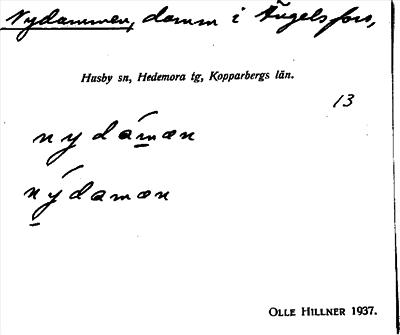 Nydammen, damm i Ängelsfors,
Husby sn, Hedemora tg, Kopparbergs län.
13
nydámæn
nýdamæn
OLLE HILLNER 1937.